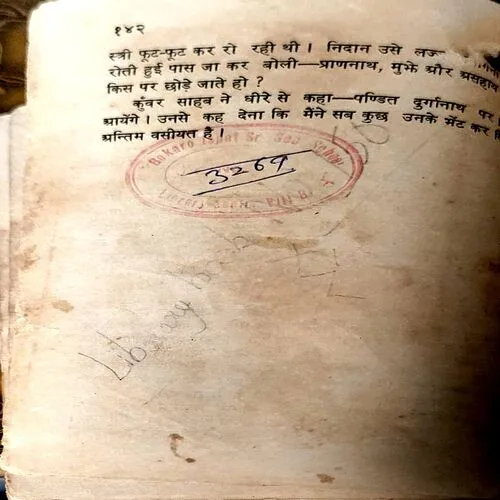 १४२
स्त्री फूट-फूट कर रो रही थी। निदान उसे
रोती हुई पास जा कर बोली—प्राणनाथ, मुझे और असहाय
किस पर छोड़े जाते हो ?
कुँवर साहब ने धीरे से कहा—पण्डित दुर्गानाथ पर
आयेंगे। उनसे कह देना कि मैंने सब कुछ उनके भेंट कर
अन्तिम वसीयत है।
Bokaro Ispat Sr. Sec. School
3269
Library
Library Book